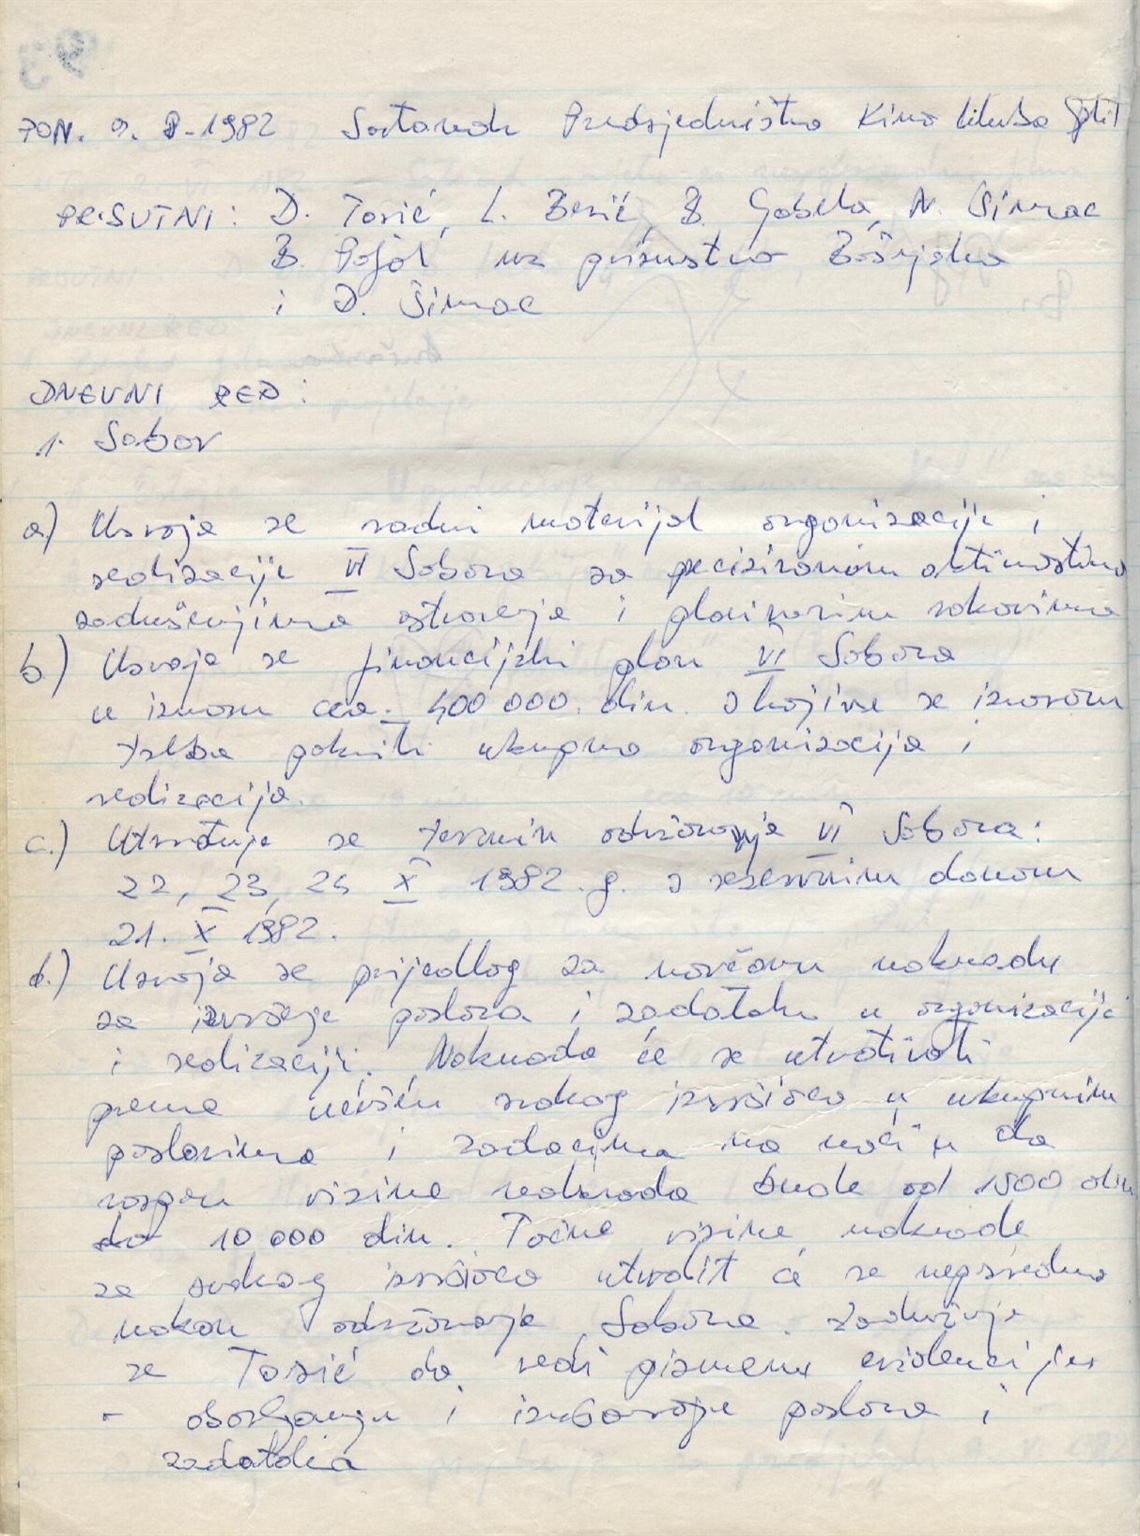 PON. 9. 8.-1982 Sastanak Predsjedništva Kino kluba Split
PRISUTNI: D. Tosić, L. Besić, B. Gabela, N. Šimac
B. Poljak uz prisustvo Bošnjaka
i D. Šimac
DNEVNI RED:
1. Sabor
a) Usvaja se radni materijal organizacije i
realizacije VI Sabora sa preciziranom aktivnostima
zaduženjima ostvarenja i planiranim rokovima
b) Usvaja se financijski plan VI Sabora
u iznosu cca. 400 000. din. S kojim se iznosom
treba pokriti ukupna organizacija i
realizacija.
c.) Utvrđuje se termin održavanja VI Sabora:
22, 23, 24 X 1982. g. s rezervnim danom
21. X 1982.
d.) Usvaja se prijedlog za novčanu naknadu
za izvršenje poslova i zadataka u organizaciji
i realizaciji. Naknada će se utvrđivati
prema učešću svakog izvršioca u ukupnim
poslovima i zadacima na način da
raspon visine naknada bude od 1500 din
do 10 000 din. Točne visine naknade
za svakog izvršioca utvrdit će se neposredno
nakon održavanja Sabora. Zadužuje
se Tosić da vodi pismenu evidenciju
o obavljanju i izvršenju poslova i
zadataka